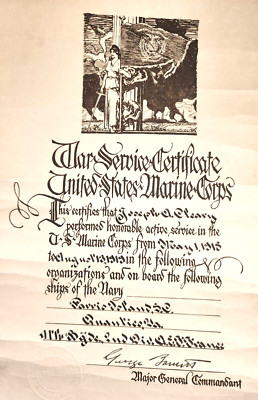 War Service Certificate
United States Marine Corps
This certifies that Joseph A. Cleary
performed honorable active service in the
U S Marine Corps from May 1, 
to August 13, 1919 in the following
organizations and on board the following
ships of the Navy
Parris Island, S.C.
Quantico, Va.
and Div. A.E.F. France
George Barnett
Major General Commandant